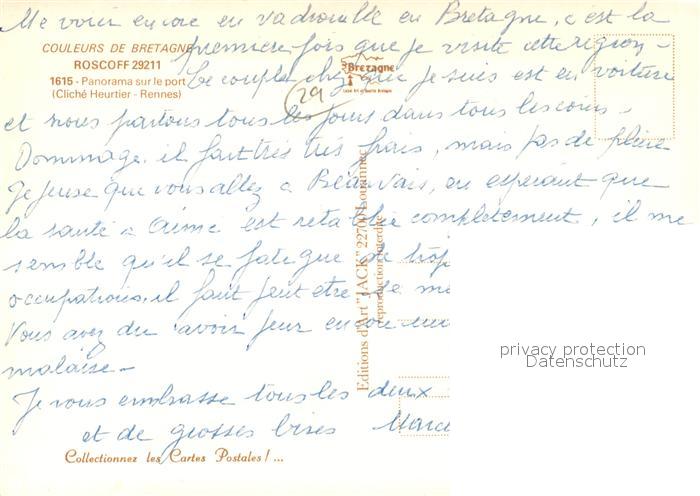 Me voici encore en vadrouille en Bretagne, c'est la
COULEURS DE BRETAGNE
première fois que je visite cette région -
ROSCOFF 29211
1615 - Panorama sur le port
(Cliché Heurtier - Rennes)
Bretagne
Le couple chez qui je suis est en voiture
29
et nous partons tous les jours dans tous les coins -
Dommage, il fait très très frais, mais pas de pluie
Je pense que vous allez à Beauvais, en espérant que
la santé à Aimé est rétablie complètement, il me
semble qu'il se fatigue de trop
occupations, il faut peut être se
Vous avez du avoir peur encore
malaise -
Je vous embrasse tous les deux
et de grosses bises
Editions d'Art "JACK" 22700 Louannec
reproduction interdite
privacy protection
Datenschutz
Collectionnez les Cartes Postales ! ...